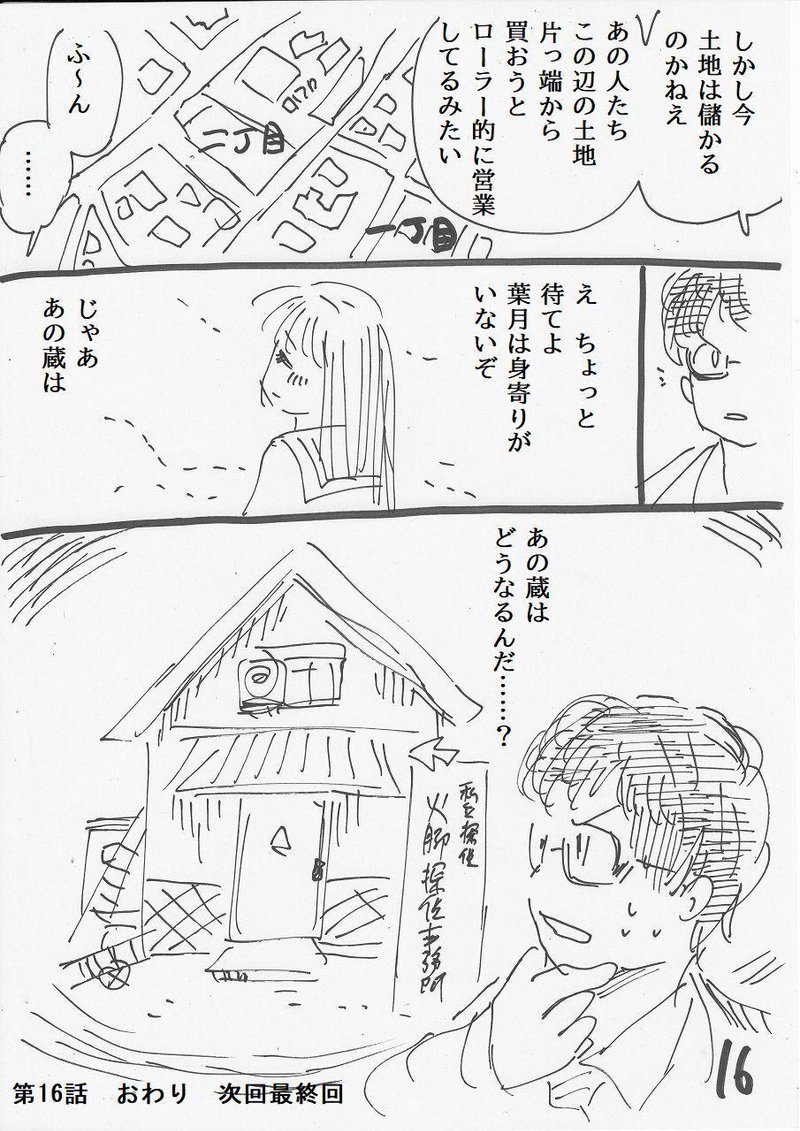 しかし今
土地は儲かる
のかねえ
あの人たち
この辺の土地
片っ端から
買おうと
ローラー的に営業
してるみたい
ふ～ん
……
二丁目
一丁目
え　ちょっと
待てよ
葉月は身寄りが
いないぞ
じゃあ
あの蔵は
あの蔵は
どうなるんだ……？
私立探偵
火脚探偵事務所
16
第16話　おわり　次回最終回